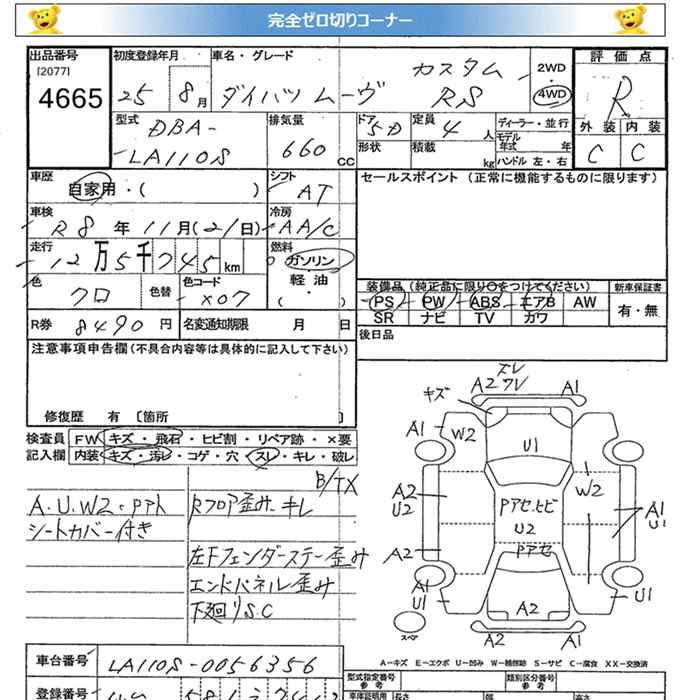 完全ゼロ切りコーナー
出品番号 初度登録年月 車名・グレード 評価点
[2077]
4665 25 8月 ダイハツ ムーヴ カスタム RS 2WD 4WD R
型式 排気量 ドア 定員 ディーラー・並行 外装 内装
DBA-
LA110S 660 CC 5D 4人 モデル年式 年 C C
形状 積載 kg ハンドル 左・右
車歴 シフト セールスポイント (正常に機能するものに限ります)
自家用・( ) AT
車検 冷房
R8年 11月(21日) AA/C
走行 燃料
12万5千745km ガソリン
色 色替 色コード 軽油
クロ X07 ( )
装備品 (純正品に限り○をつけてください) 新車保証書
PS PW ABS エアB AW 有・無
SR ナビ TV カワ
R券 8490円 名変通知期限 月 日
後日品
注意事項申告欄 (不具合内容等は具体的に記入して下さい)
修復歴 有 〔箇所 〕
検査員 FW キズ・飛石・ヒビ割・リペア跡・×要
記入欄 内装 キズ・汚レ・コゲ・穴・スレ・キレ・破レ
B/TX
A.U.W2.Pアト Rフロア歪み.キレ
シートカバー付き
左Fフェンダーステー歪み
エンドパネル歪み
下廻りS.C
スレ
キズ A2 ワレ A1
A1 W2 U1
W2
A2 U2 Pアセ.ヒビ U2 A1 U1
A2 Pアセ
A1 U1 A2 U1
スペア A2 A1
A-キズ E-エクボ U-凹み W-補修跡 S-サビ C-腐食 XX-交換済
車台番号 LA110S-0056356
型式指定番号 類別区分番号
参考 参考
登録番号
車体証明用 長さ 幅 高さ